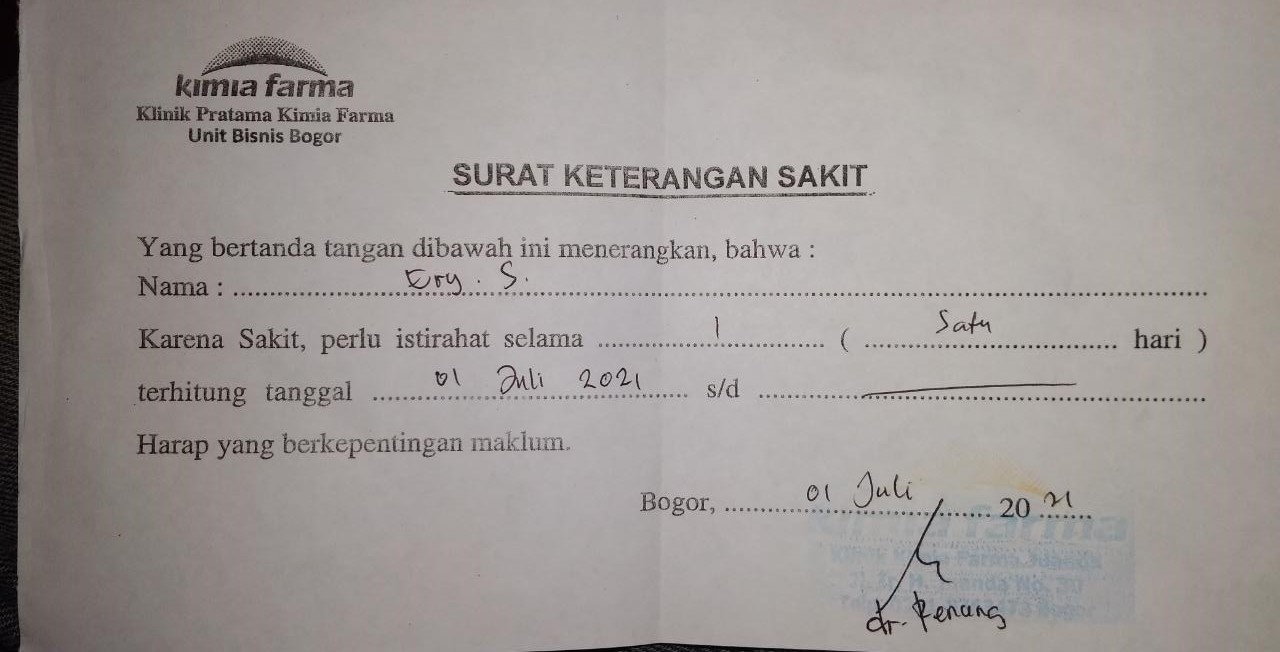 kimia farma
Klinik Pratama Kimia Farma
Unit Bisnis Bogor
SURAT KETERANGAN SAKIT
Yang bertanda tangan dibawah ini menerangkan, bahwa :
Nama : Ery. S.
Karena Sakit, perlu istirahat selama 1 ( Satu hari )
terhitung tanggal 01 Juli 2021 s/d
Harap yang berkepentingan maklum.
Bogor, 01 Juli 2021
kimia farma
Kimia Farma Juanda
Jl. Ir. H. Juanda No. 30
dr. Renang